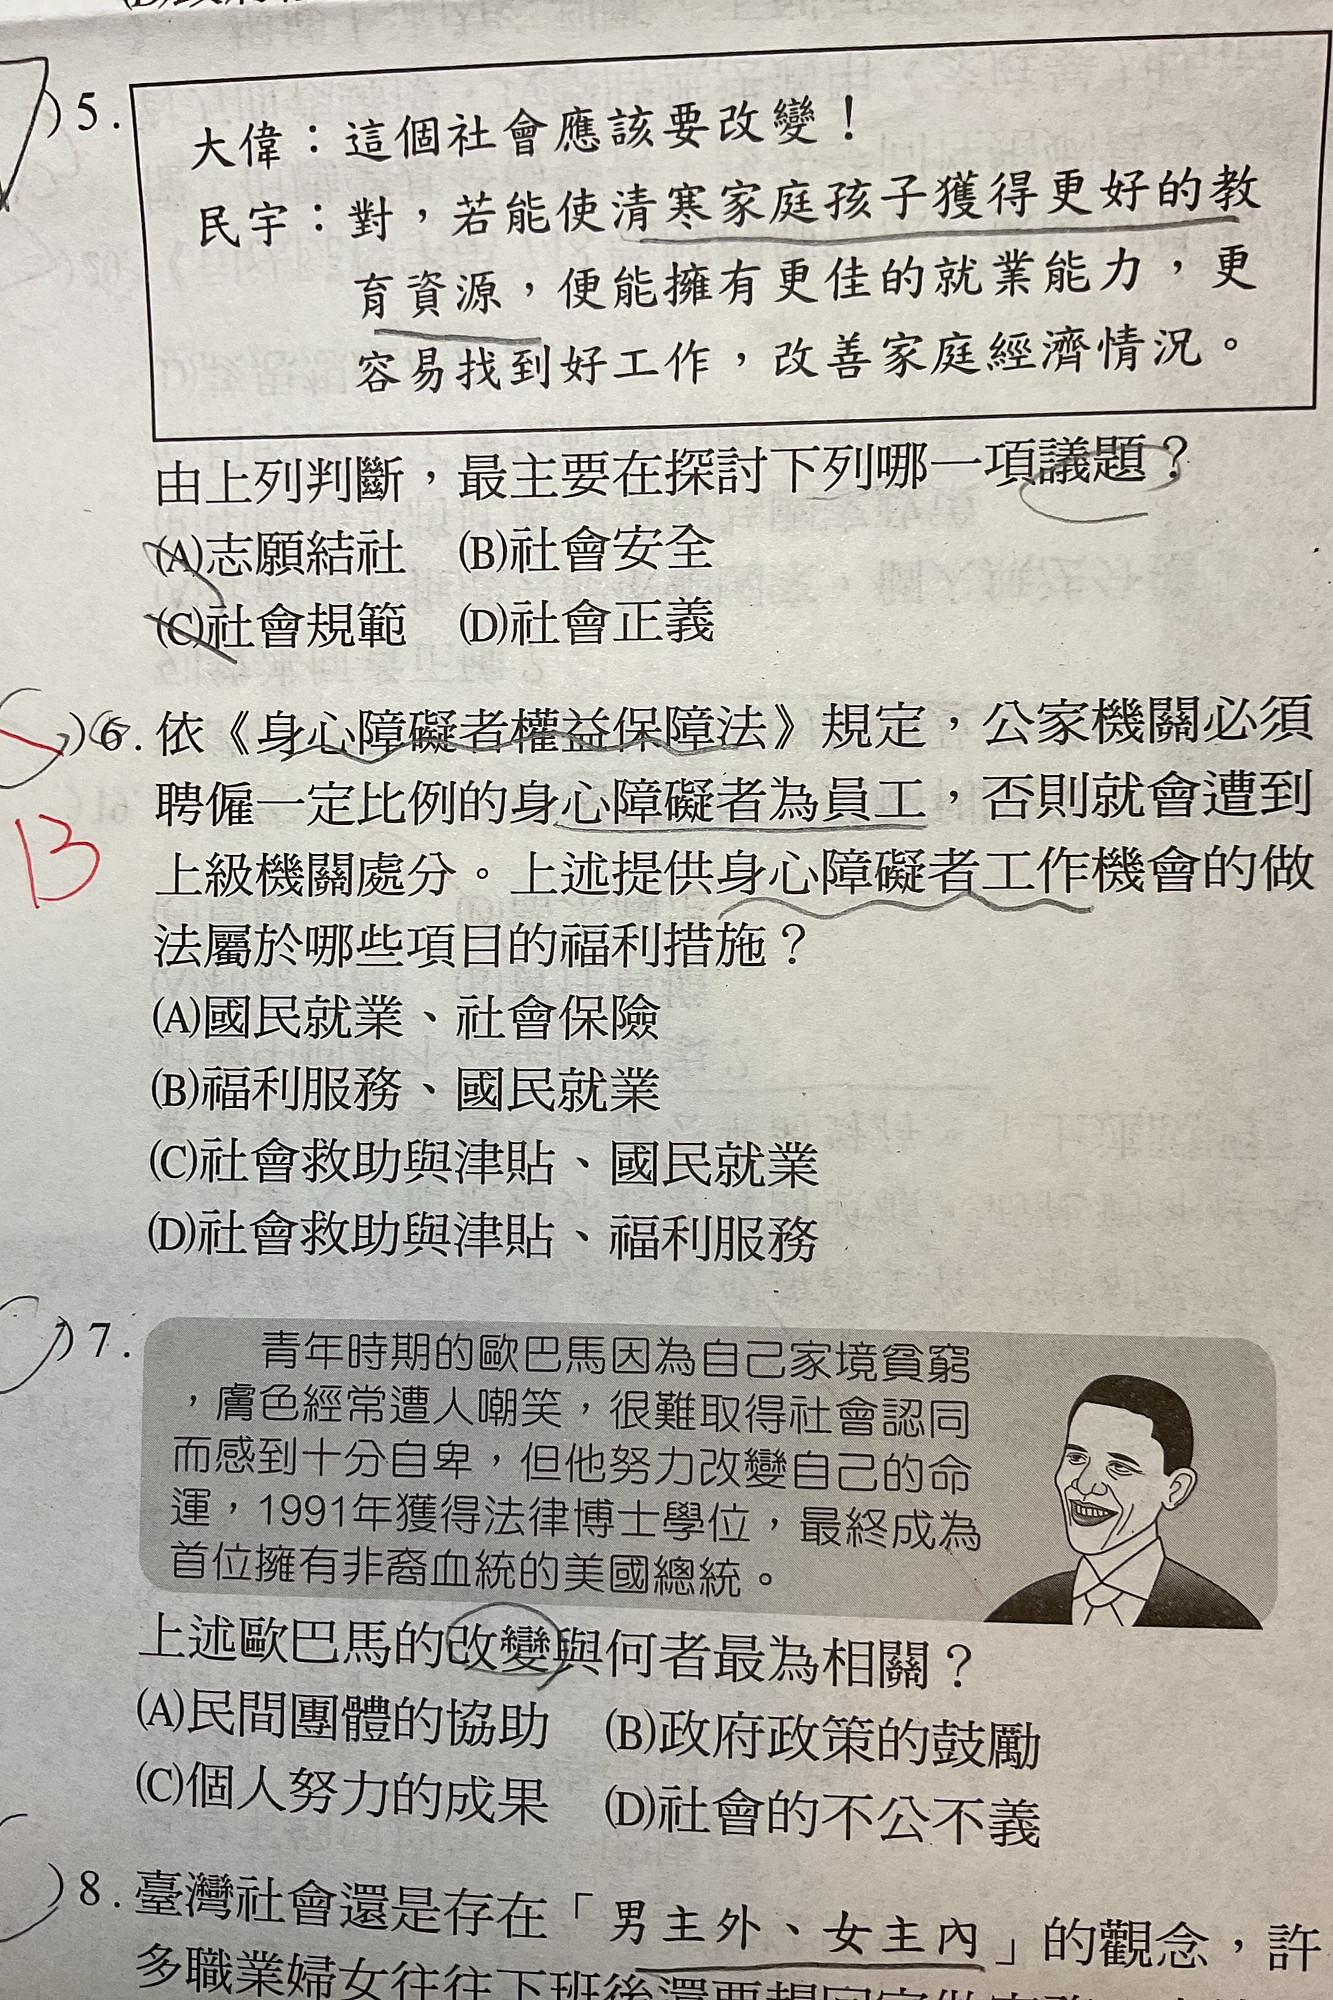 5.
大偉：這個社會應該要改變！
民宇：對，若能使清寒家庭孩子獲得更好的教
育資源，便能擁有更佳的就業能力，更
容易找到好工作，改善家庭經濟情況。
由上列判斷，最主要在探討下列哪一項議題？
(A)志願結社　(B)社會安全
(C)社會規範　(D)社會正義
)6.依《身心障礙者權益保障法》規定，公家機關必須
聘僱一定比例的身心障礙者為員工，否則就會遭到
B
上級機關處分。上述提供身心障礙者工作機會的做
法屬於哪些項目的福利措施？
(A)國民就業、社會保險
(B)福利服務、國民就業
(C)社會救助與津貼、國民就業
(D)社會救助與津貼、福利服務
)7.
青年時期的歐巴馬因為自己家境貧窮
，膚色經常遭人嘲笑，很難取得社會認同
而感到十分自卑，但他努力改變自己的命
運，1991年獲得法律博士學位，最終成為
首位擁有非裔血統的美國總統。
上述歐巴馬的改變與何者最為相關？
(A)民間團體的協助　(B)政府政策的鼓勵
(C)個人努力的成果　(D)社會的不公不義
)8.臺灣社會還是存在「男主外、女主內」的觀念，許
多職業婦女往往下班後還要趕回家做